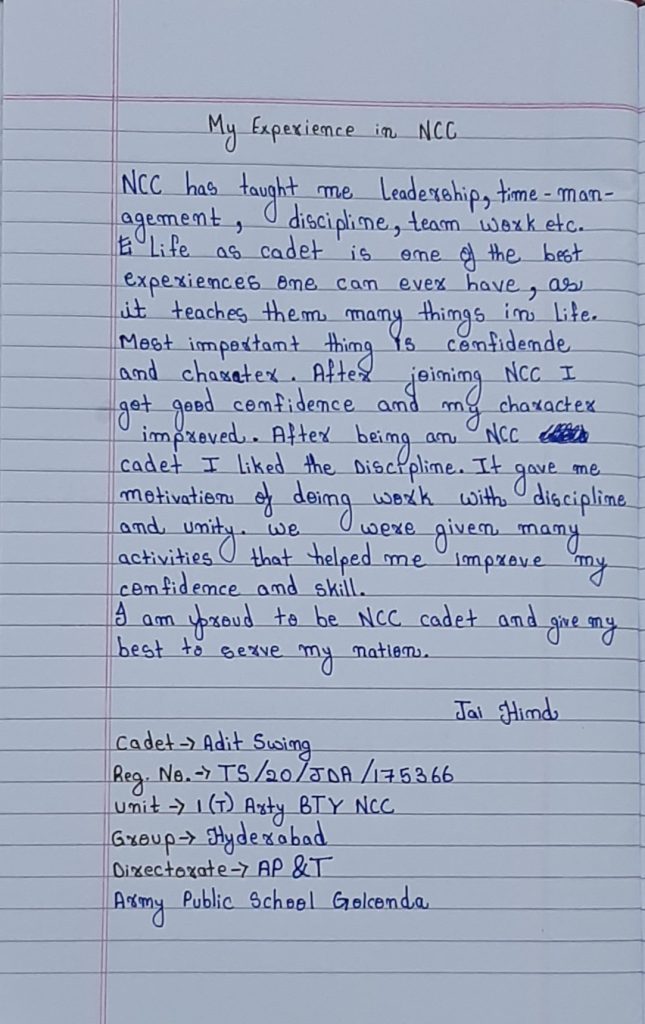 My Experience in NCC
NCC has taught me Leadership, time-man-
agement, discipline, team work etc.
Life as cadet is one of the best
experiences one can ever have, as
it teaches them many things in life.
Most important thing is confidende
and charater. After joining NCC I
got good confidence and my character
improved. After being an NCC
cadet I liked the Discipline. It gave me
motivation of doing work with discipline
and unity. We were given many
activities that helped me improve my
confidence and skill.
I am proud to be NCC cadet and give my
best to serve my nation.
Jai Hind
Cadet → Adit Swing
Reg. No. → TS/20/JDA/175366
Unit → 1(T) Arty BTY NCC
Group → Hyderabad
Directorate → AP &T
Army Public School Golconda